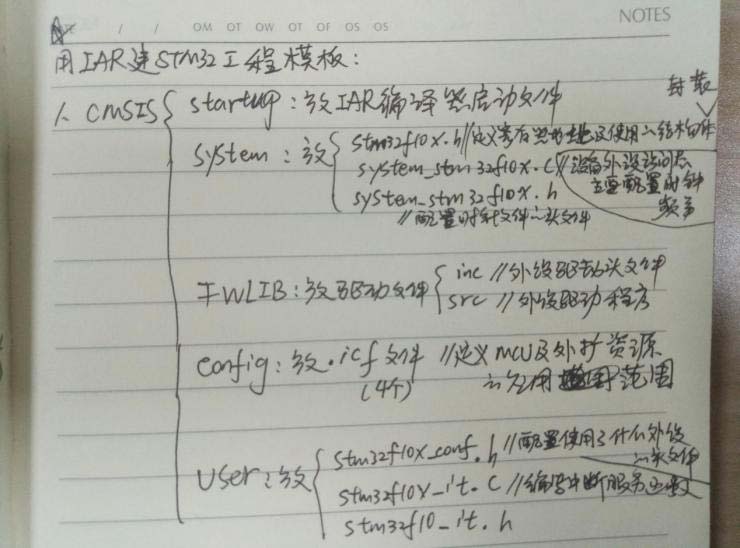 NOTES
/ / OM OT OW OT OF OS OS
用IAR建STM32工程模板:
1. CMSIS
startup:放IAR编译器启动文件
封装
system:放
stm32f10x.h//定义寄存器地址及使用的结构体
system_stm32f10x.c//设备外设访问层
主要配置时钟
频率
system_stm32f10x.h
//配置时钟文件的头文件
FWLIB:放驱动文件
inc //外设驱动头文件
src //外设驱动程序
config:放.icf文件 //定义MCU及外扩资源
(4个) 的 范围
user:放
stm32f10x_conf.h//配置使用了什么外设
的头文件
stm32f10x_it.c//编写中断服务函数
stm32f10_it.h